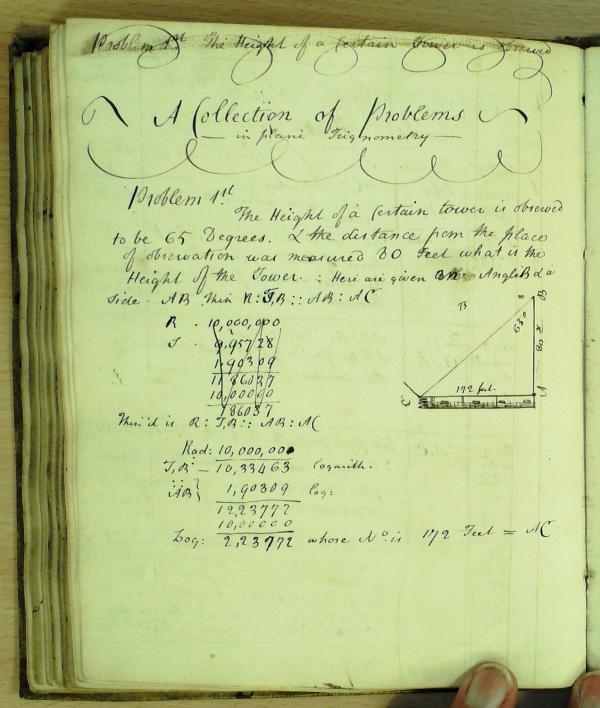 Problem 1st The Height of a Certain Tower is obsrwed
A Collection of Problems
in plane Trigonometry
Problem 1st
The Height of a Certain tower is obsrewed
to be 65 Degrees. & the distance from the place
of obserwation was measured 80 Feet what is the
Height of the Tower : Here are given Angle B & a
Side AB Then R : T,B :: AB : AC
R . 10,000,000
S . 9,95728
1,90309
11,86037
10,00000
1,86037
Then it is R : T,B :: AB : AC
Rad: 10,000,000
T,B — 10,33463 Logarith.
AB} 1,90309 Log:
12,23772
10,00000
Log: 2,23772 whose No. is 172 Feet = AC
B
B
65°
80
A
172 feet.
C